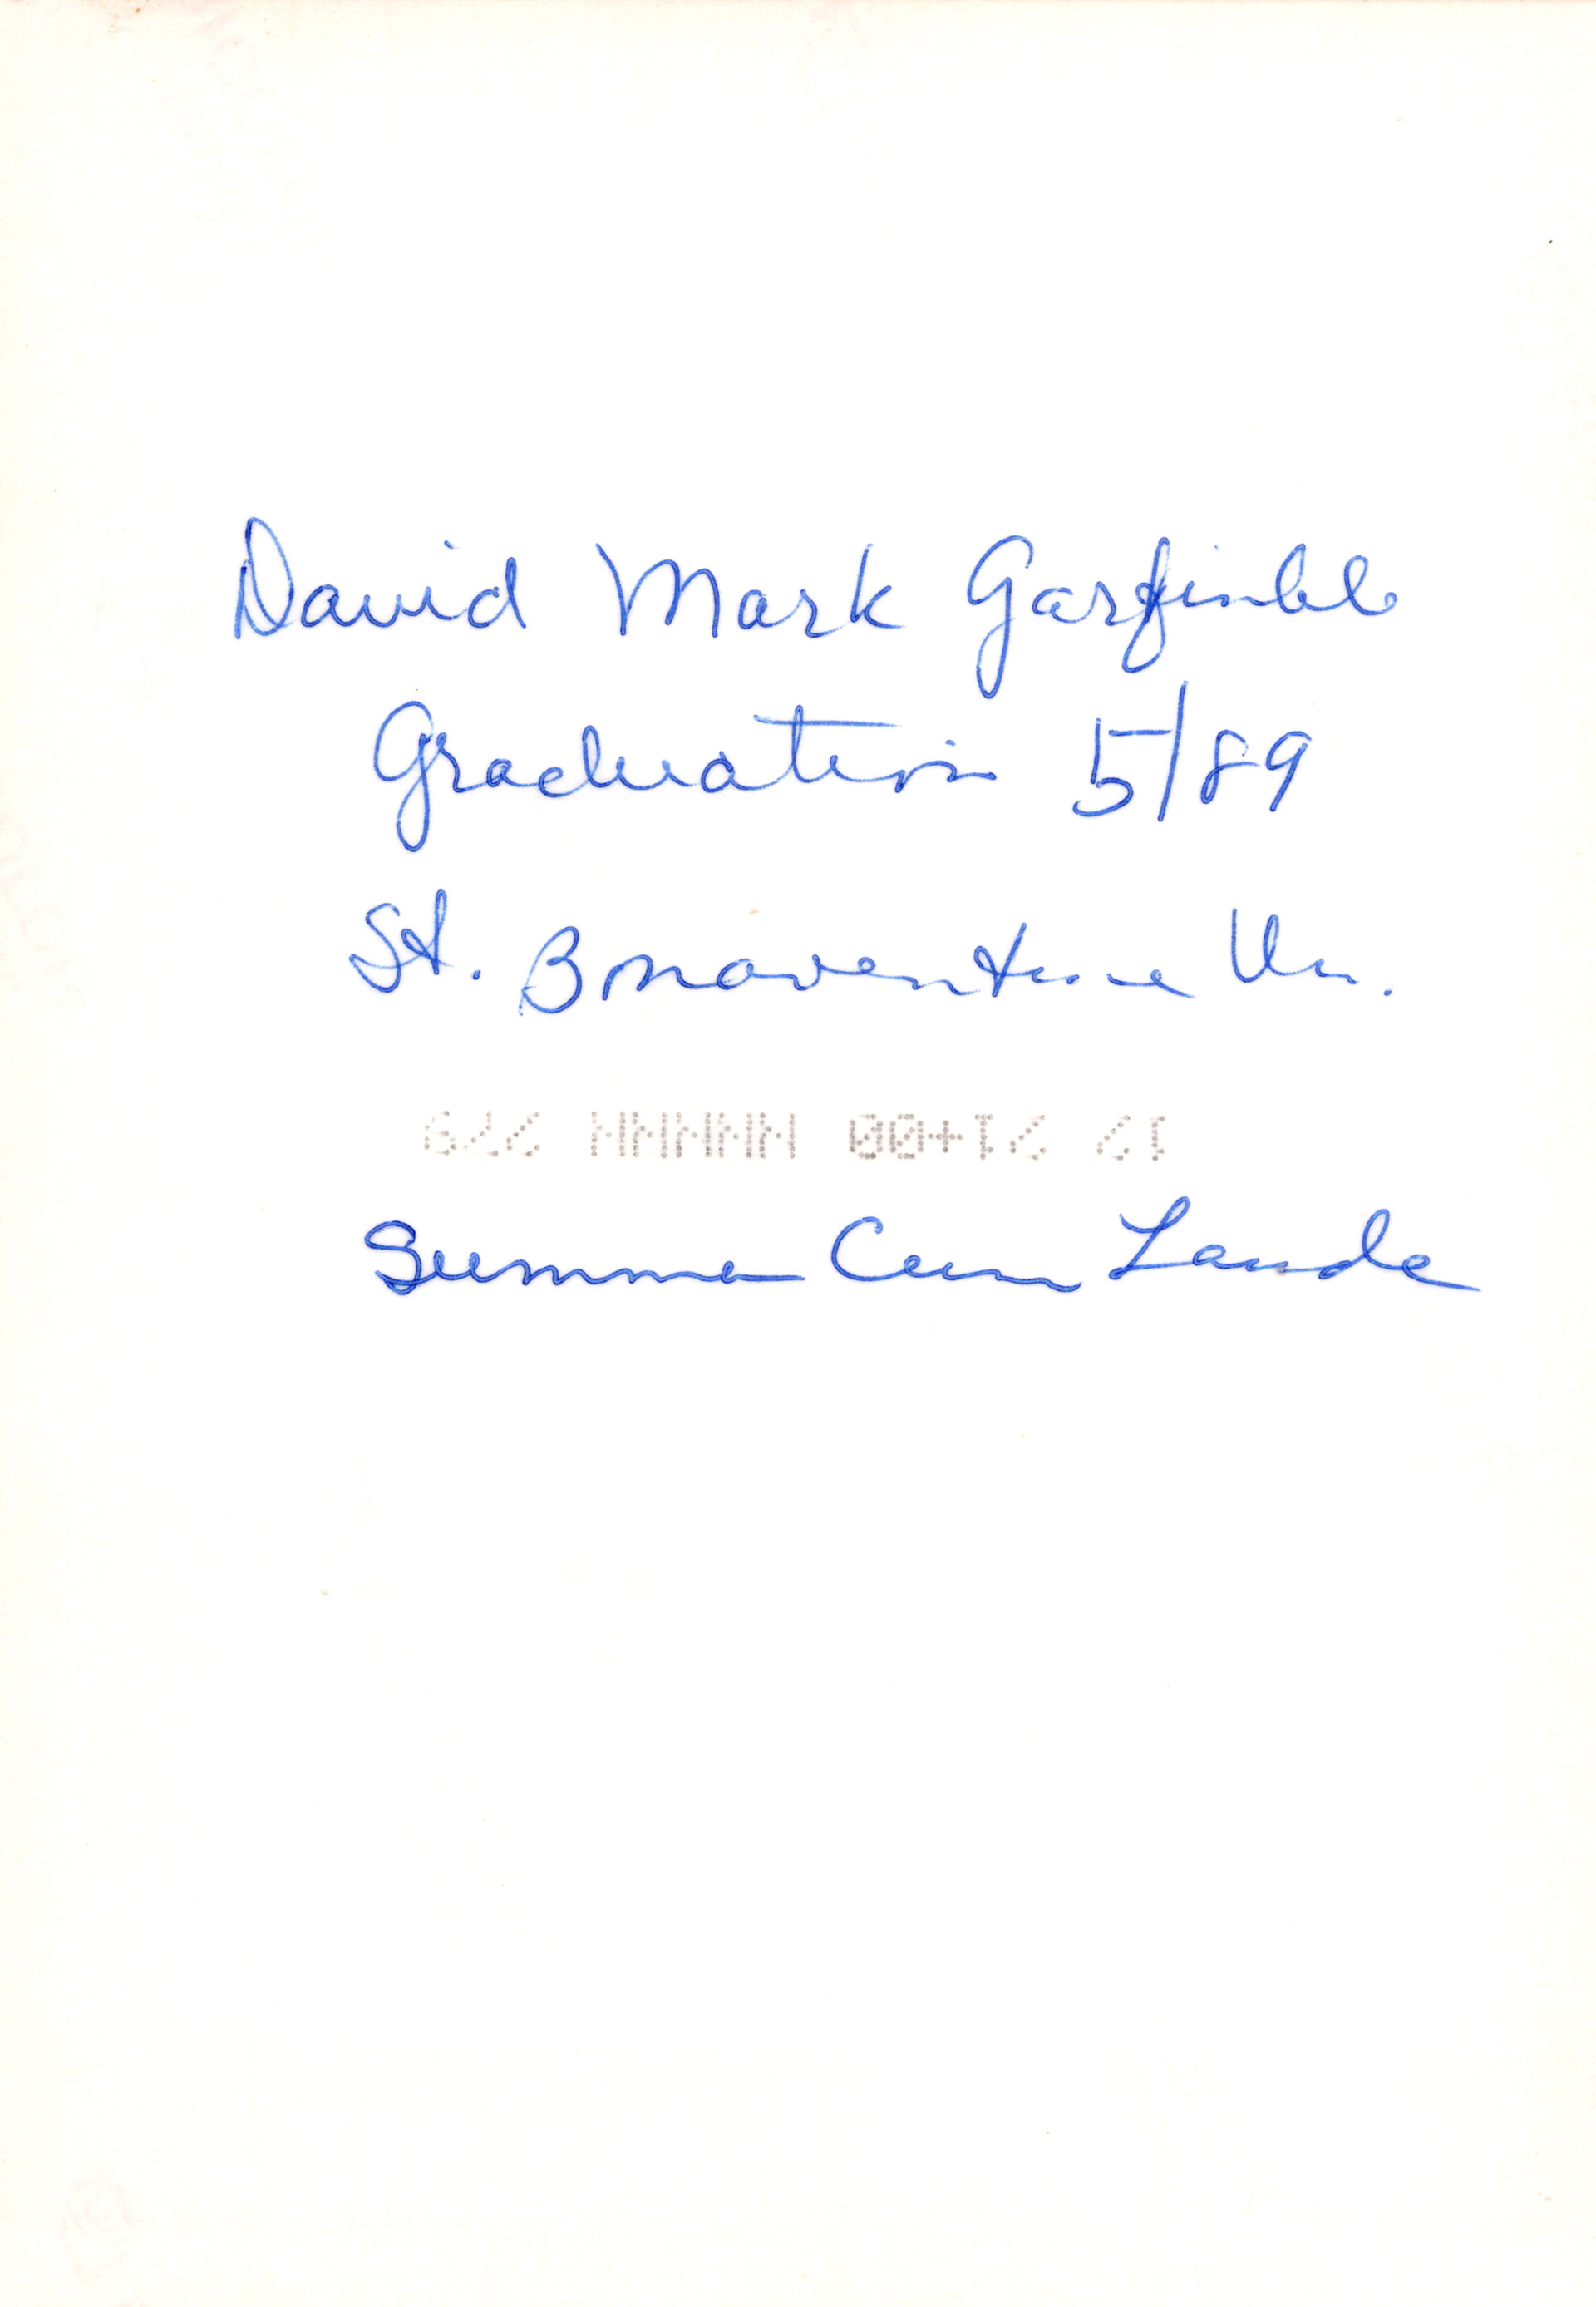 David Mark Garfinkle
Graduation 5/89
St. Bonaventure Un.
Summa Cum Laude